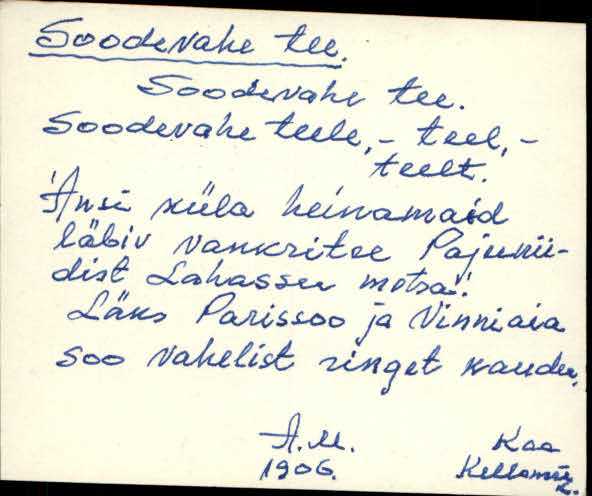 Soodevahe tee.
Soodevahe tee.
Soodevahe teele, - teel, -
teelt.
'Ansi küla heinamaid
läbiv vankritee Pajunii-
dist Lahassuu metsa'.
Läks Parissoo ja Vinniaia
soo vahelist ringet kaudu.
A.M. Kaa
1906. Kellamäe k.